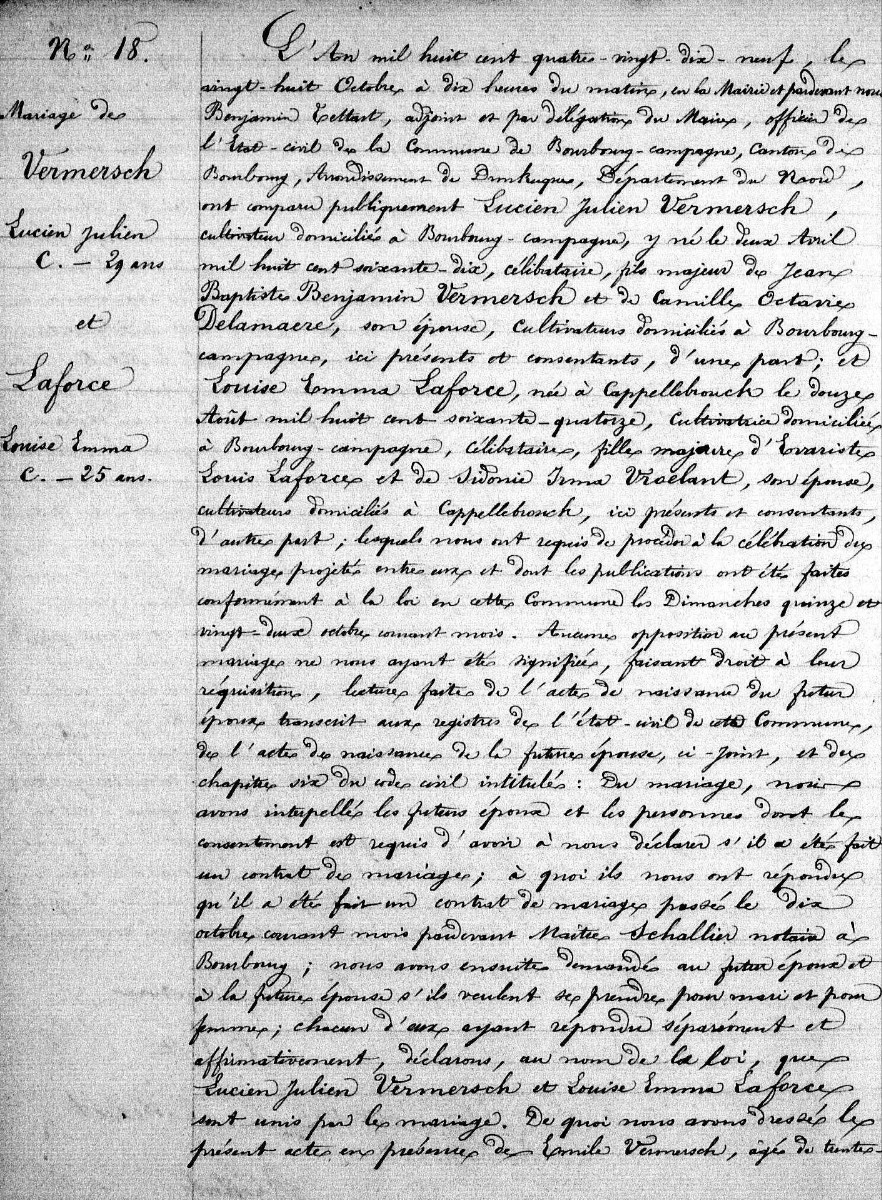 N° 18.
Mariage de
Vermersch
Lucien Julien
C. — 29 ans
et
Laforce
Louise Emma
C. — 25 ans.
L'An mil huit cent quatre-vingt-dix-neuf, le
vingt-huit Octobre à dix heures du matin, en la Mairie et pardevant nous
Benjamin Tettart, adjoint et par délégation du Maire, officier de
l'Etat-civil de la Commune de Bourbourg-campagne, Canton de
Bourbourg, Arrondissement de Dunkerque, Département du Nord,
ont comparu publiquement Lucien Julien Vermersch,
cultivateur domicilié à Bourbourg-campagne, y né le deux Avril
mil huit cent soixante-dix, célibataire, fils majeur de Jean
Baptiste Benjamin Vermersch et de Camille Octavie
Delamaere, son épouse, cultivateurs domiciliés à Bourbourg-
campagne, ici présents et consentants, d'une part; et
Louise Emma Laforce, née à Cappellebrouck le douze
Août mil huit cent soixante-quatorze, Cultivatrice domiciliée
à Bourbourg-campagne, célibataire, fille majeure d'Evariste
Louis Laforce et de Sidonie Irma Vraelant, son épouse,
cultivateurs domiciliés à Cappellebrouck, ici présents et consentants,
d'autre part; lesquels nous ont requis de procéder à la célébration du
mariage projeté entre eux et dont les publications ont été faites
conformément à la loi en cette Commune les Dimanches quinze et
vingt-deux octobre courant mois. Aucune opposition au présent
mariage ne nous ayant été signifiée, faisant droit à leur
réquisition, lecture faite de l'acte de naissance du futur
époux transcrit aux registres de l'état-civil de cette Commune,
de l'acte de naissance de la future épouse, ci-joint, et du
chapitre six du code civil intitulé: Du mariage, nous
avons interpellé les futurs époux et les personnes dont le
consentement est requis d'avoir à nous déclarer s'il a été fait
un contrat de mariage; à quoi ils nous ont répondu
qu'il a été fait un contrat de mariage passé le dix
octobre courant mois pardevant Maître Schallier notaire à
Bourbourg; nous avons ensuite demandé au futur époux et
à la future épouse s'ils veulent se prendre pour mari et pour
femme; chacun d'eux ayant répondu séparément et
affirmativement, déclarons, au nom de la loi, que
Lucien Julien Vermersch et Louise Emma Laforce
sont unis par le mariage. De quoi nous avons dressé le
présent acte en présence de Emile Vermersch, âgé de trente-